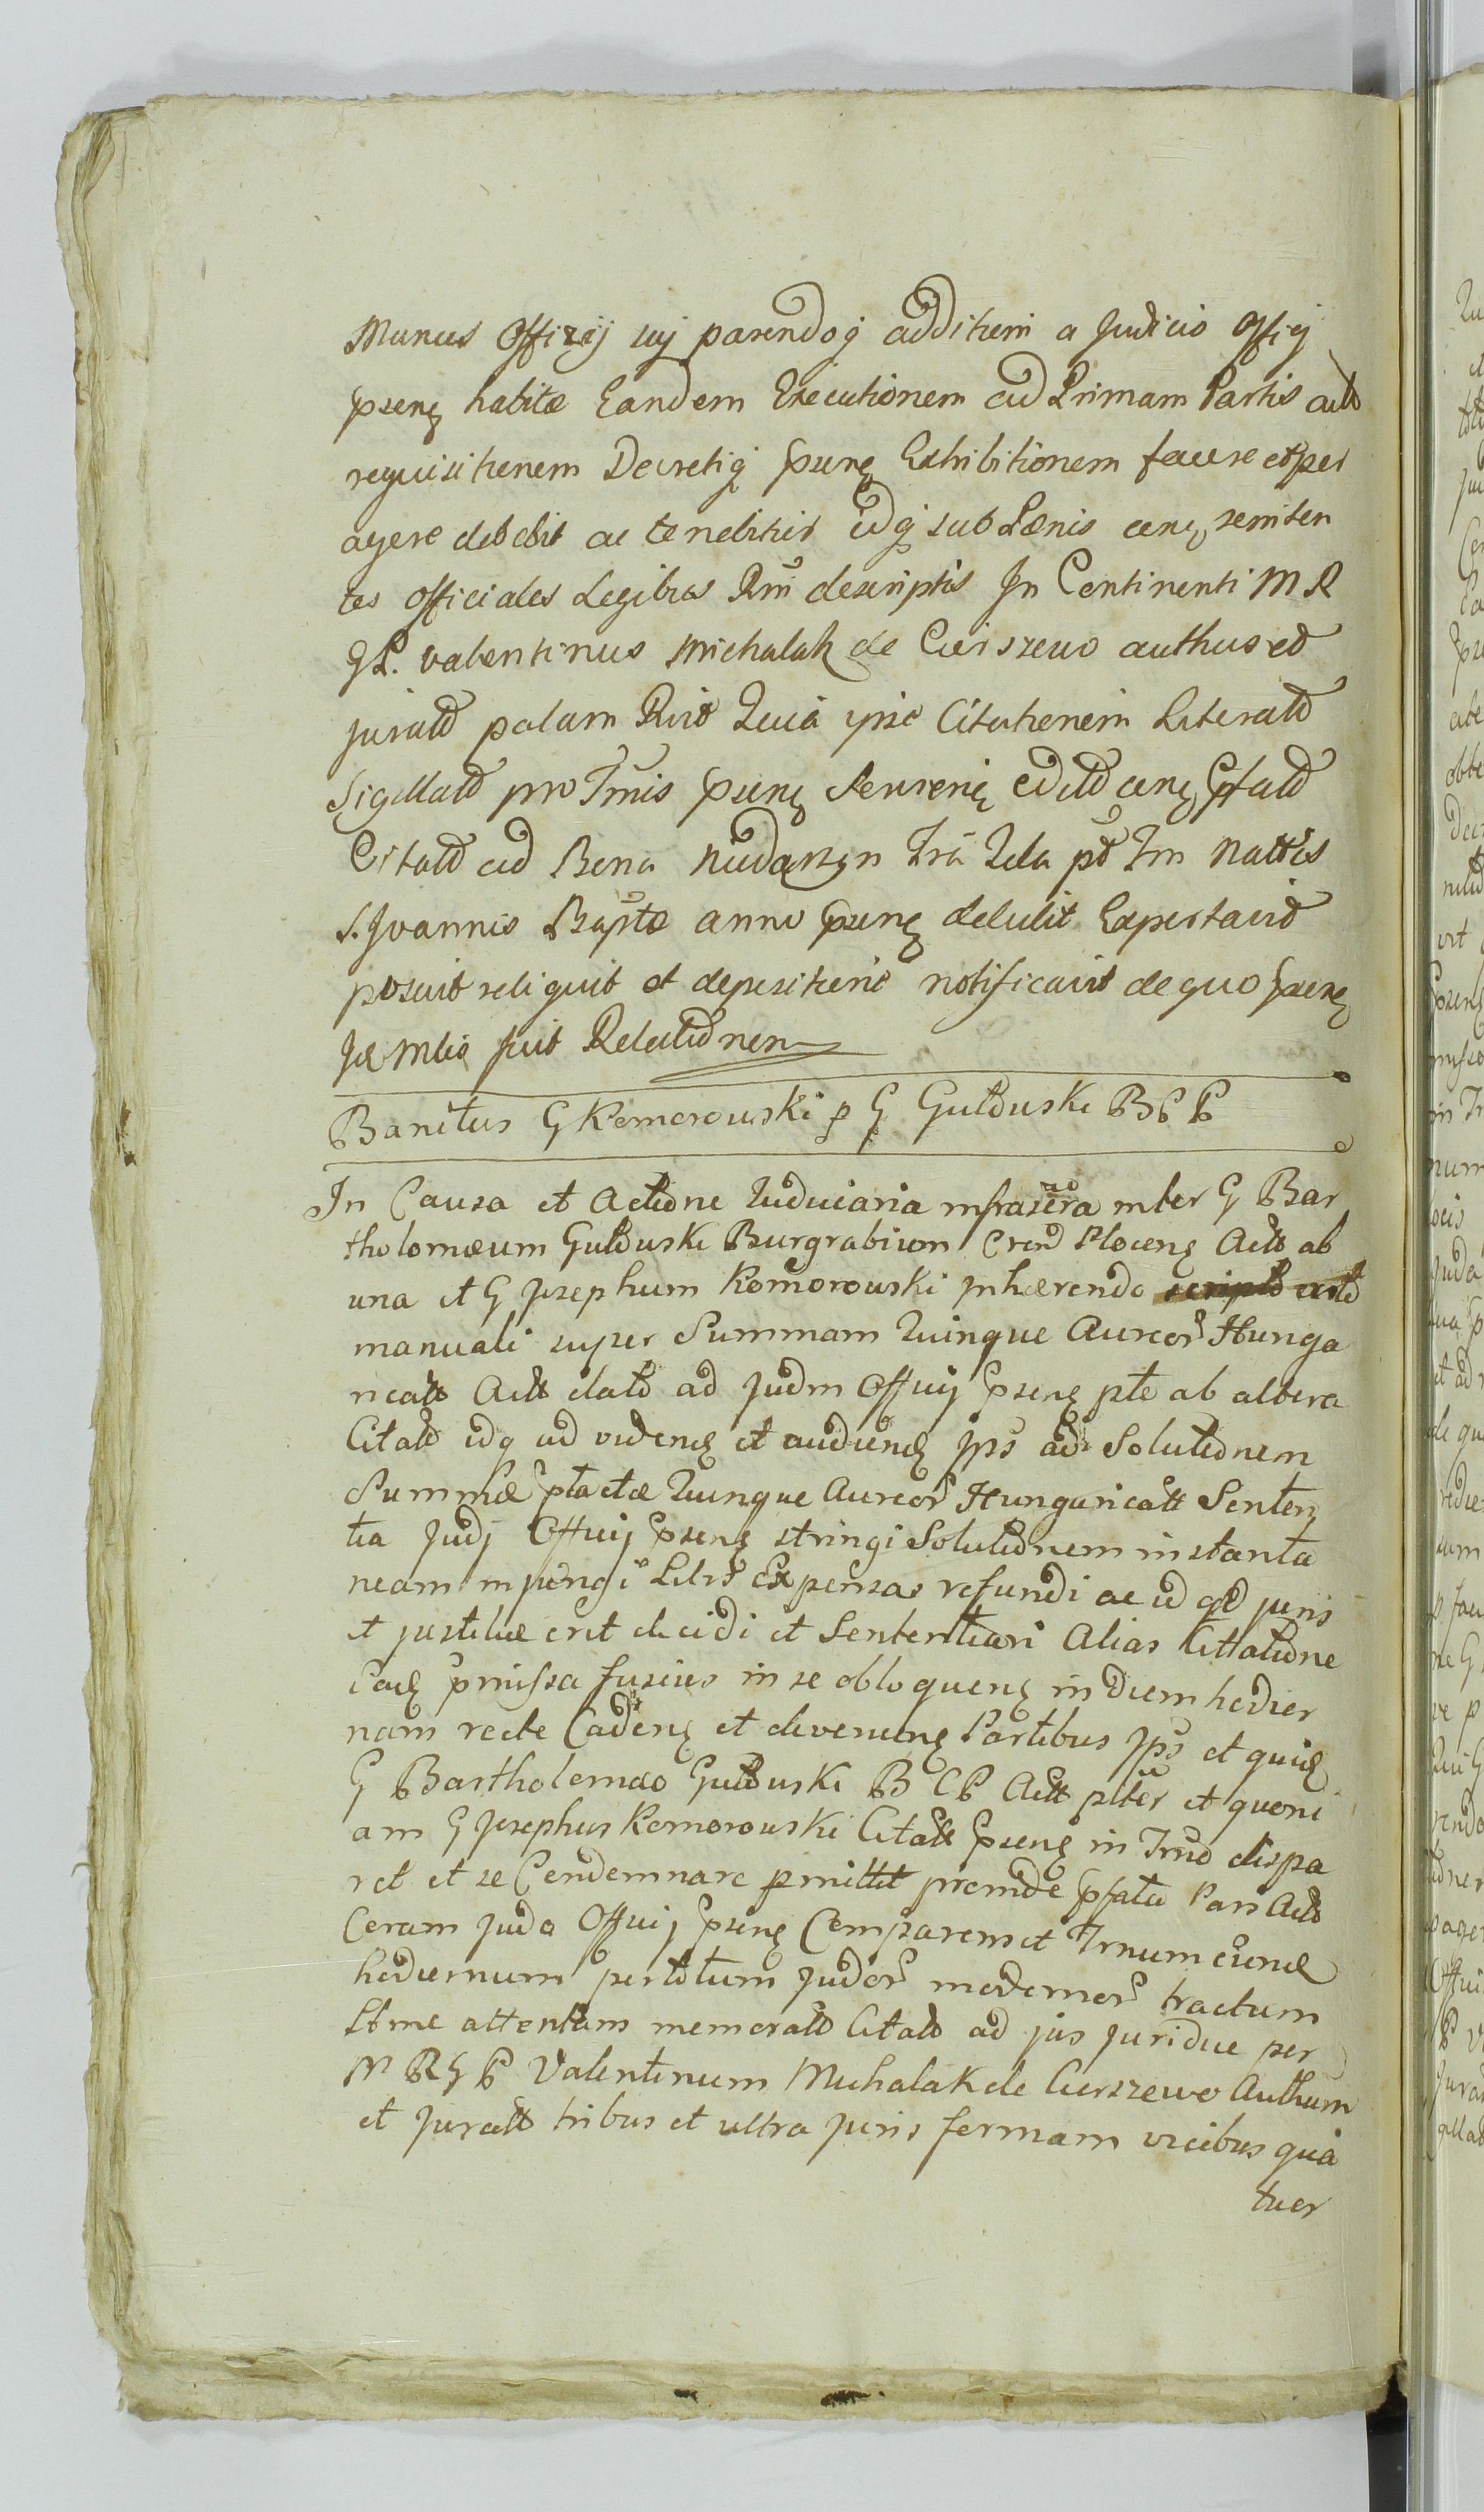 Munus Offizij suj parendoq additum a Judicio Offij
Pseng habitæ Eandem Executionem ad Primam Partis actt
requisitionem Decretiq Pseng Exhibitionem facere et per
agere debebit ac tenebitur idq sub Pænis ceng reniten
tes Officiales Legibus Rni descriptis In Continenti M R
G P. Valentinus Michalak de Cierszewo authus et
juratt palam Rvit Quia ipse Citationem Literatt
Sigillatt pro Tmis Pseng editt Pfatt
Citatt ad Bona Nudarzyn Tra Tm Nattis
S. Joannis Baptæ anno Pseng detulit Exportavit
posuit reliquit et depositione notificavit de quo Pseng
fuit Relationem
Banitus G Komorowski p G Gutowski B C P
In Causa et Actione Judiciaria infrascra inter G Bar
tholomæum Gutowski Burgrabium Plocens Actt ab
una et G Josephum Komorowski inhærendo
manuali super Summam Quinque Aureor Hunga
ricatt Actt datt ad Judm Offij Pseng pte ab altera
Citatt idq ad videng et audieng Jps ad Solutionem
Summæ ptactæ Quinque Aureor Hungaricatt Senten
tia Judj Offij Pseng stringi Solutionem instanta
neam injungi Litis Expensas refundi ac id qd juris
et justitiæ erit decidi et Sententiari Alias Cittatione
eadg pmissa fusius in se obloqueng in diem hodier
nam recte Cadeng et deveneng Partibus Jps et quidg
G Bartholomæo Gutowski B C P Actt plter et quoni
am G Josephus Komorowski Citatt Pseng in Tmo dispa
ret et se Condemnare pmittit proinde Pfata Pars Actt
Coram Judo Offij Pseng Comparens et Tmum eieng
hodiernum peritotum Judor modernor tractum
Ltme attentans memoratt Citatt ad jus juridice per
M R G P Valentinum Michalak de Cierszewo Authum
et juratt tribus et ultra juris formam vicibus qua
tuor